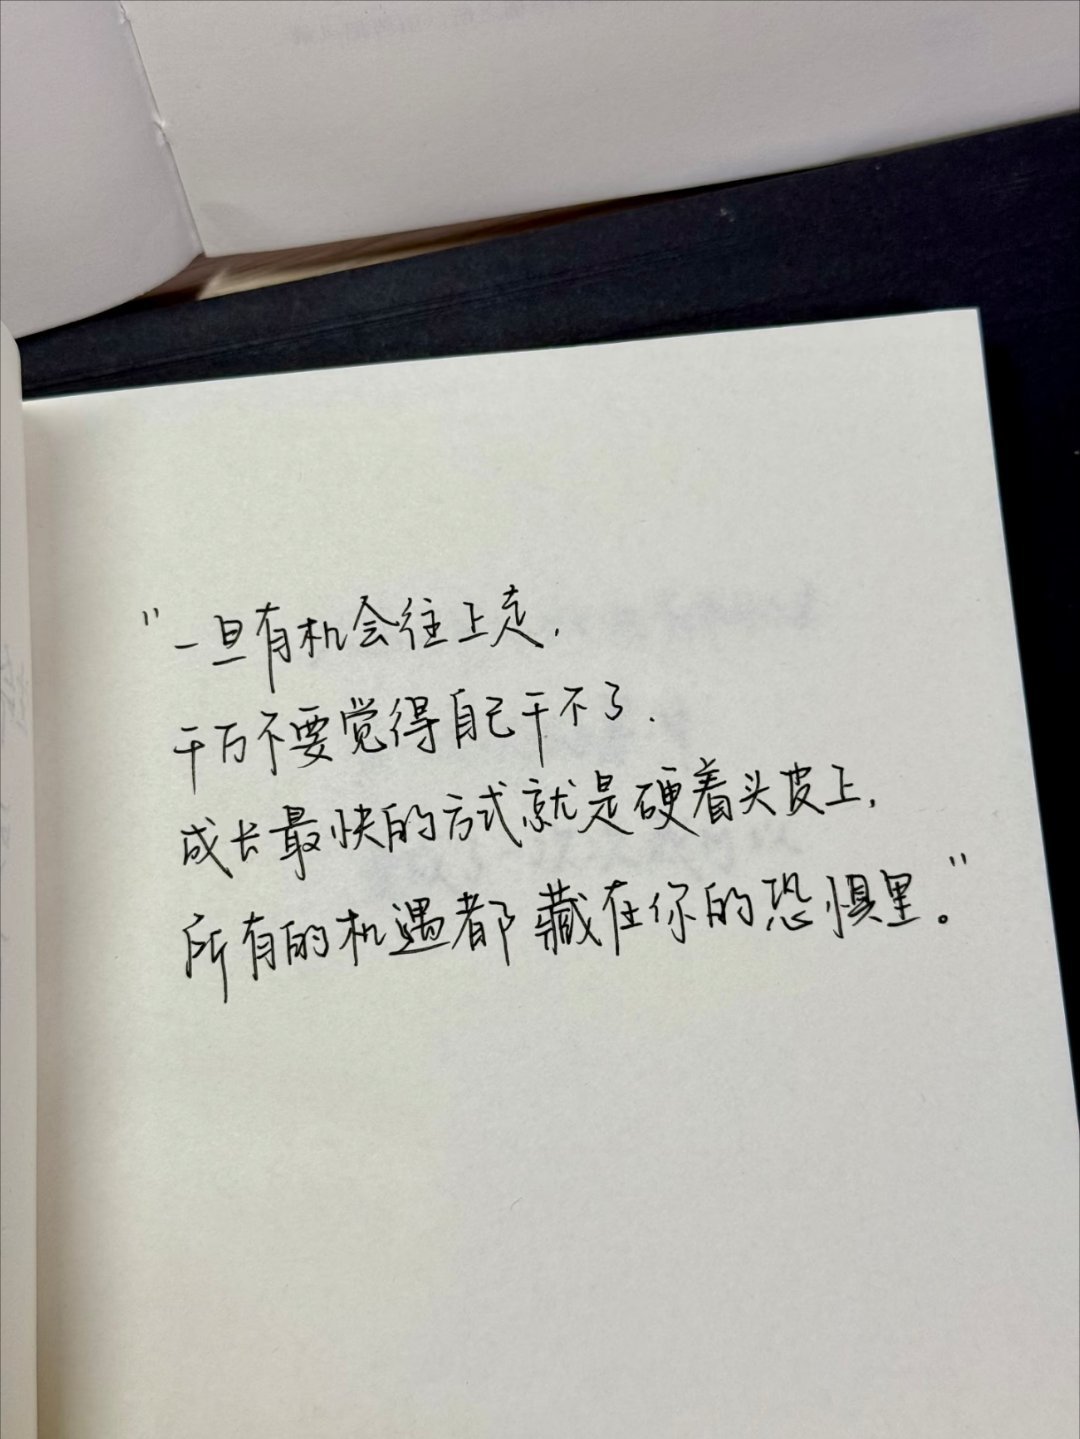 "一旦有机会往上走,
千万不要觉得自己干不了.
成长最快的方式就是硬着头皮上,
所有的机遇都藏在你的恐惧里。"